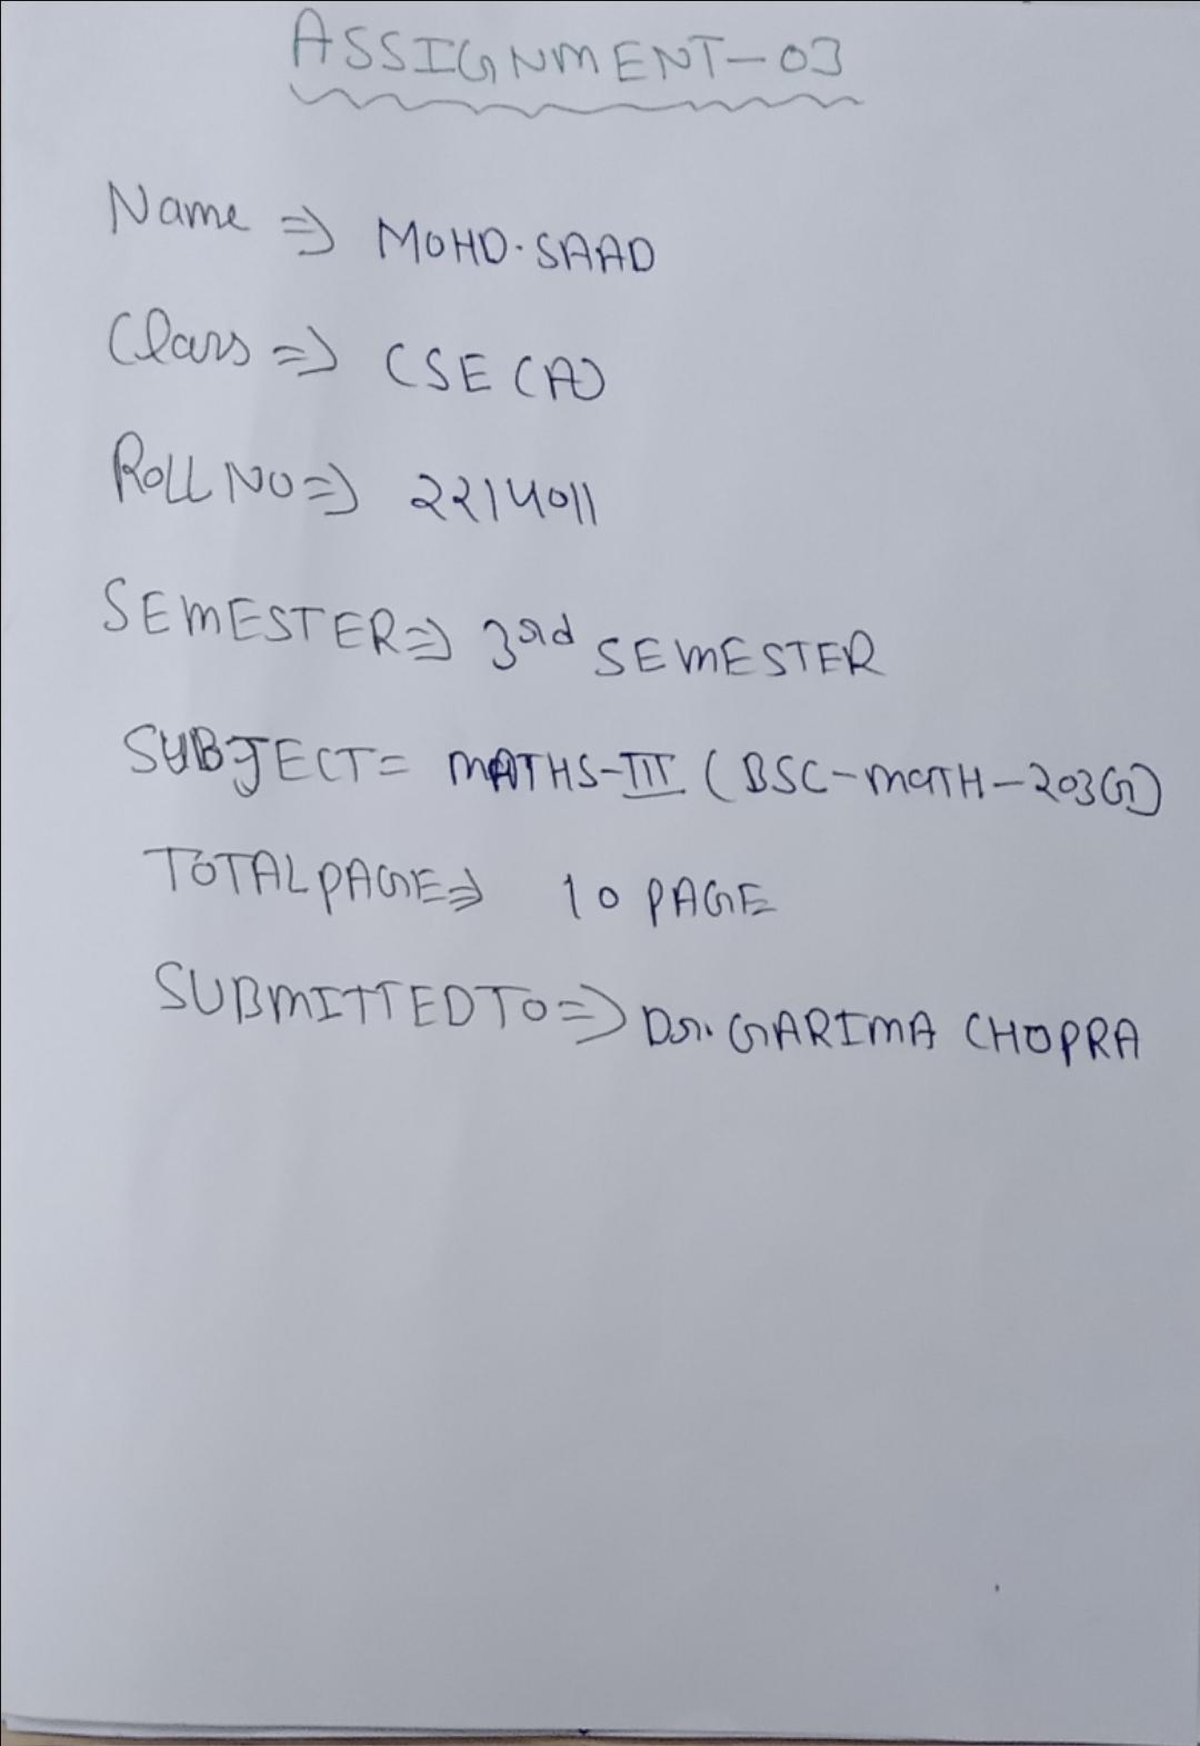 ASSIGNMENT-03
Name ⇒ MOHD. SAAD
Class ⇒ CSE (A)
ROLL NO ⇒ 2214011
SEMESTER ⇒ 3rd SEMESTER
SUBJECT = MATHS-III (BSC-MATH-203G)
TOTAL PAGE ⇒ 10 PAGE
SUBMITTED TO ⇒ Dr. GARIMA CHOPRA